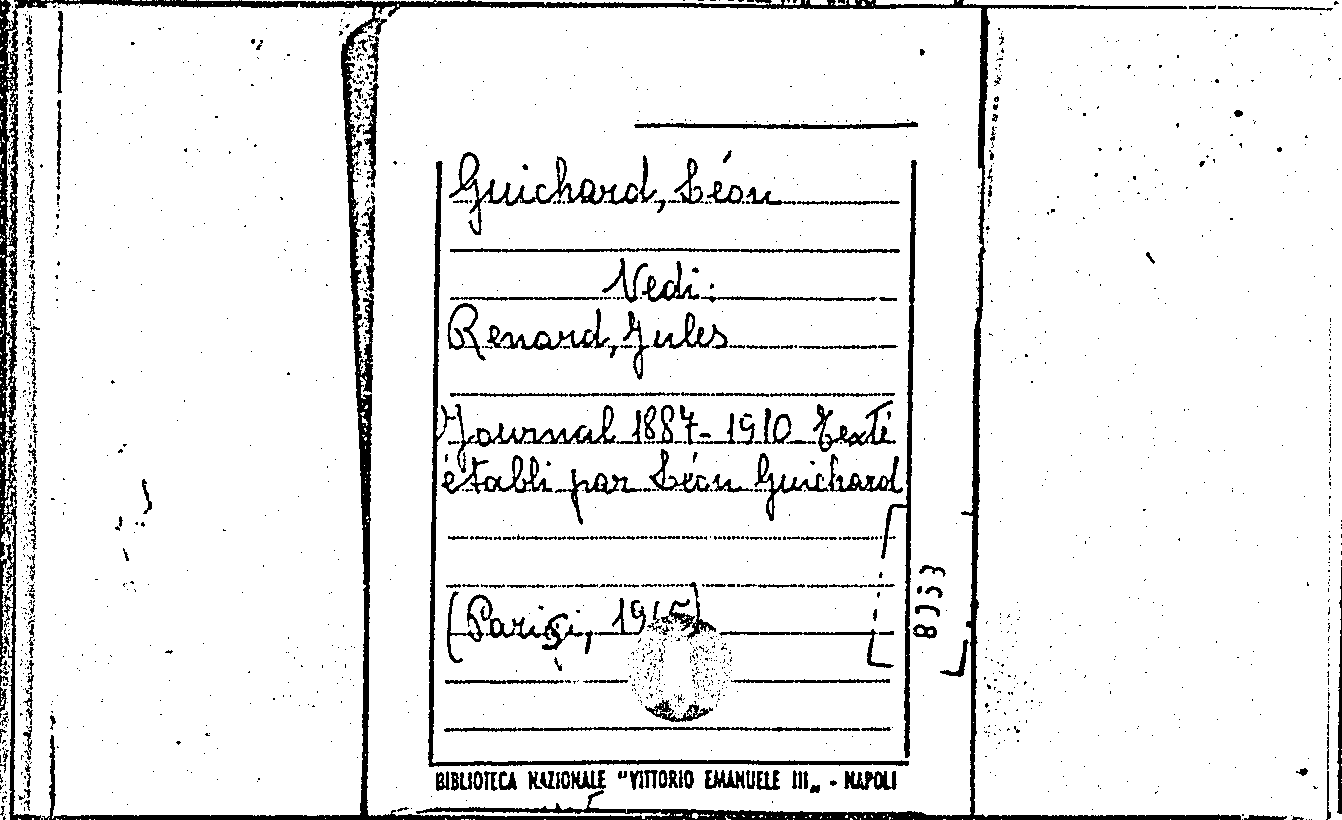 Guichard, Léon
Vedi:
Renard, Jules
Journal 1887-1910 Texti
établi par Léon Guichard
(Parigi,
BIBLIOTECA NAZIONALE "VITTORIO EMANUELE III„ - NAPOLI